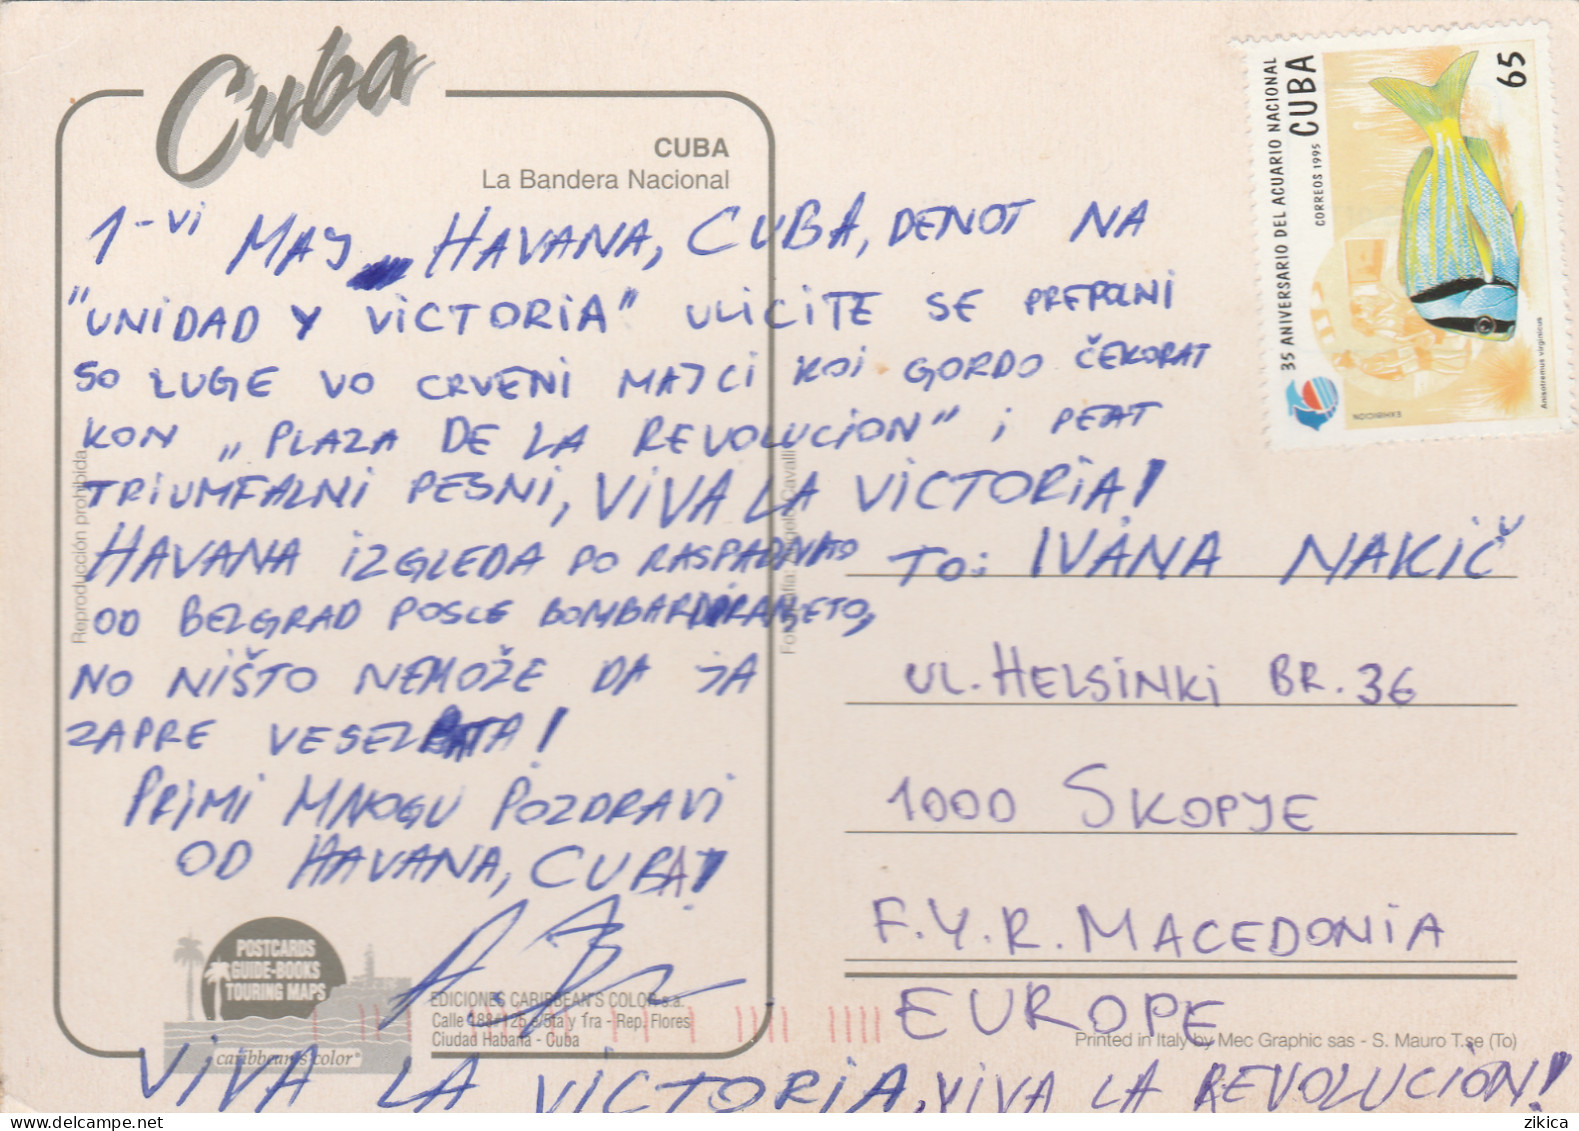 Cuba
CUBA
La Bandera Nacional
1-vi MAJ HAVANA, CUBA, DENOT NA
"UNIDAD Y VICTORIA" ULICITE SE PREPOLNI
SO LUGE VO CRVENI MAJCI KOI GORDO ČEKORAT
KON „PLAZA DE LA REVOLUCION" i PEAT
TRIUMFALNI PESNI, VIVA LA VICTORIA!
HAVANA IZGLEDA PO RASPADNATO
OD BELGRAD POSLE BOMBARDIRANJETO,
NO NIŠTO NEMOŽE DA JA
ZAPRE VESELBATA!
PRIMI MNOGU POZDRAVI
OD HAVANA, CUBA!
VIVA LA VICTORIA, VIVA LA REVOLUCIÓN!
Reproducción prohibida
Fotografía: Angelo Cavalli
POSTCARDS
GUIDE-BOOKS
TOURING MAPS
caribbean's color®
EDICIONES CARIBBEAN'S COLOR s.a.
Calle 188#126 e/5ta y 1ra - Rep. Flores
Ciudad Habana - Cuba
35 ANIVERSARIO DEL ACUARIO NACIONAL
CUBA
CORREOS 1995
65
EXHIBICION
Anisotremus virginicus
TO: IVANA NAKIČ
UL. HELSINKI BR. 36
1000 SKOPJE
F.Y.R. MACEDONIA
EUROPE
Printed in Italy by Mec Graphic sas - S. Mauro T.se (To)
zikica